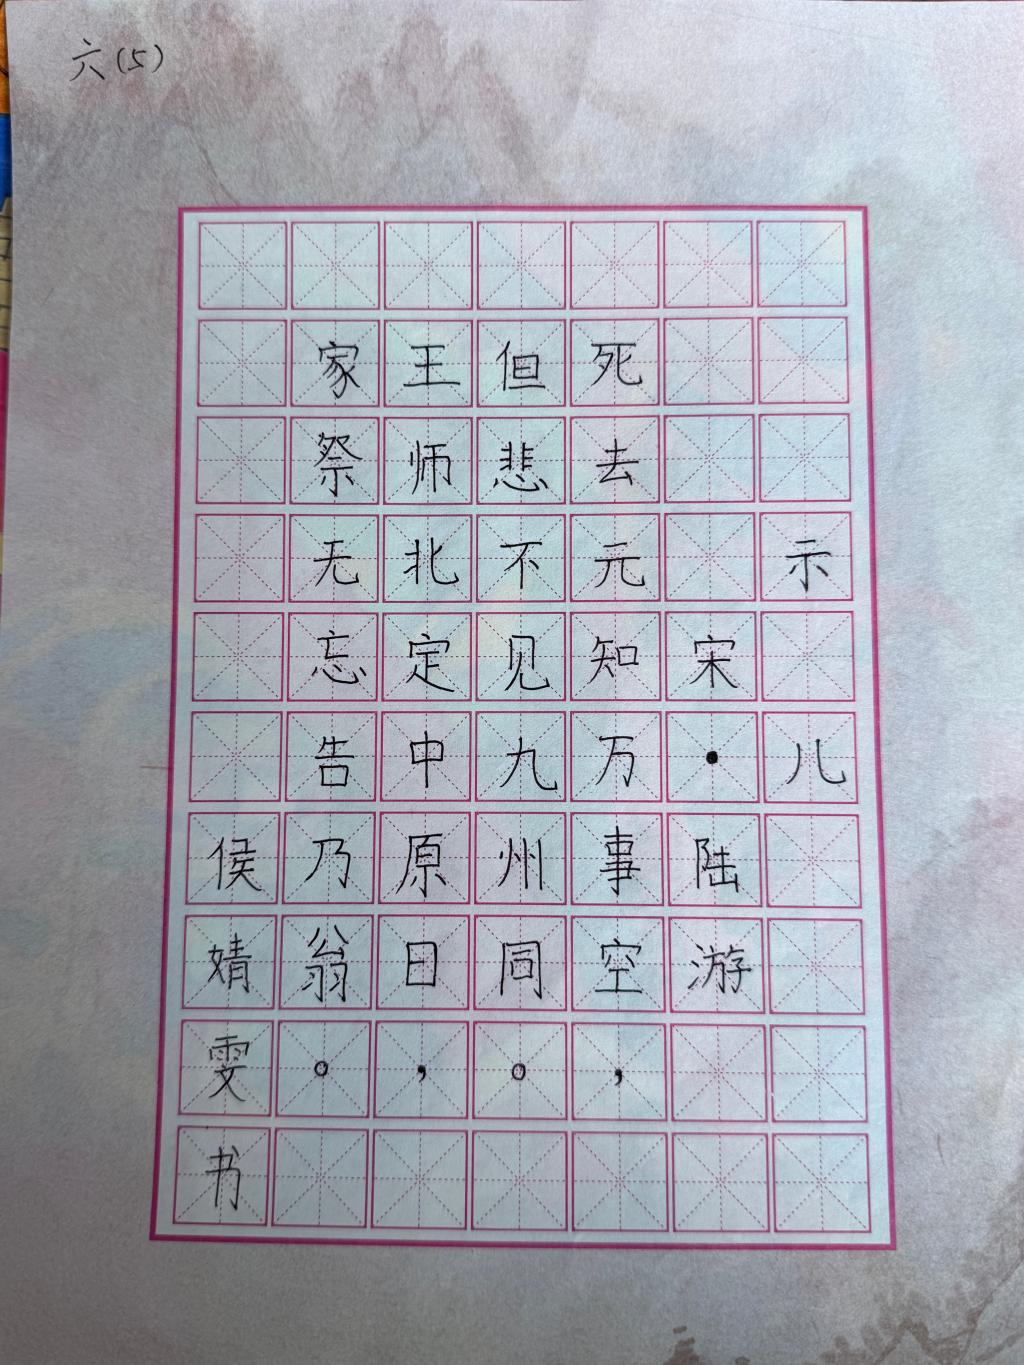 六(5)
示儿
宋·陆游
死去元知万事空，
但悲不见九州同。
王师北定中原日，
家祭无忘告乃翁。
侯婧雯书